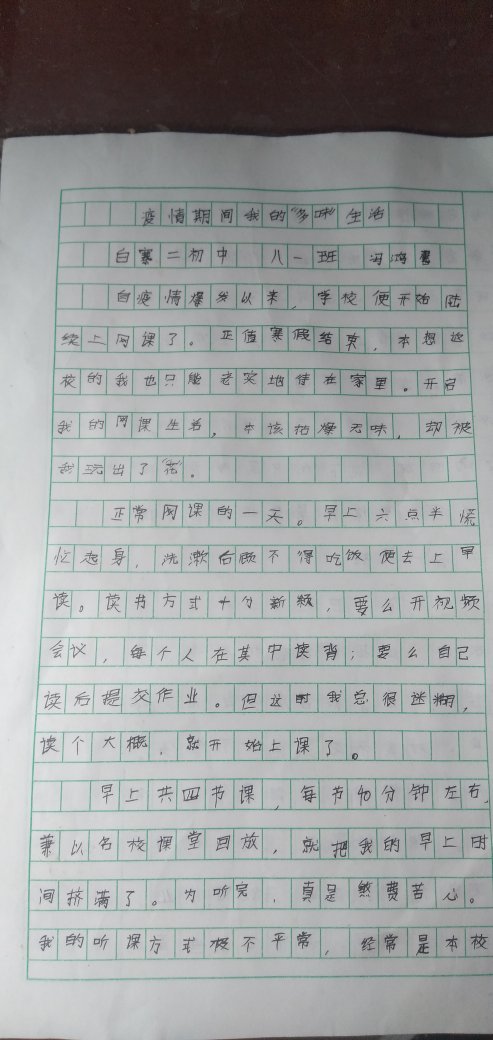 疫情期间我的“多味”生活
白寨二初中 八一班 冯鸿
自疫情爆发以来，学校便开始陆
续上网课了。正值寒假结束，本想返
校的我也只能老实地待在家里。开启
我的网课生活，本该枯燥无味，却被
我玩出了“花”。
正常网课的一天。早上六点半慌
忙起身，洗漱后顾不得吃饭便去上早
读。读书方式十分新颖，要么开视频
会议，每个人在其中读背；要么自己
读后提交作业。但这时我总很迷糊，
读个大概，就开始上课了。
早上共四节课，每节40分钟左右，
兼以名校课堂回放，就把我的早上时
间挤满了。为听完，真是煞费苦心。
我的听课方式极不平常，经常是本校